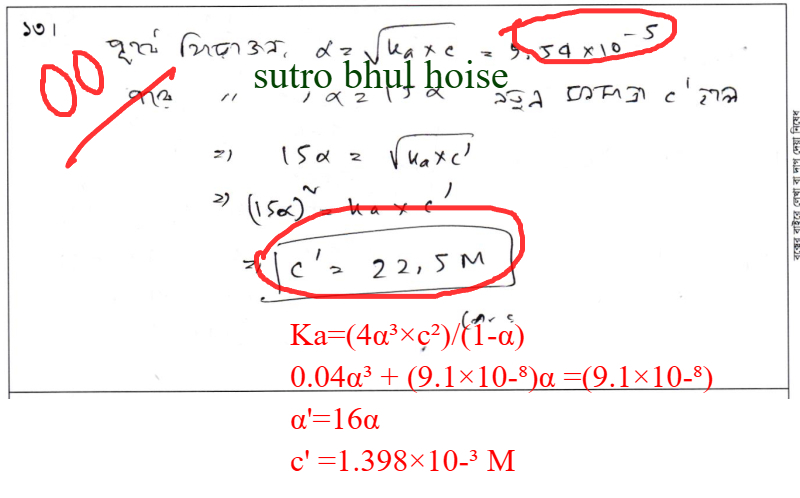 ১৩।
পূর্বে বিয়োজন, α = √Ka × c = 9.54 × 10⁻⁵
sutro bhul hoise
পরে " , α = 15α নতুন ঘনমাত্রা c' হলে
00
⇒ 15α = √Ka × c'
⇒ (15α)² = Ka × c'
⇒ c' = 22.5 M
(Ans:
Ka=(4α³×c²)/(1-α)
0.04α³ + (9.1×10-⁸)α =(9.1×10-⁸)
α'=16α
c' =1.398×10-³ M
বক্সের বাইরে লেখা বা দাগ দেয়া নিষেধ